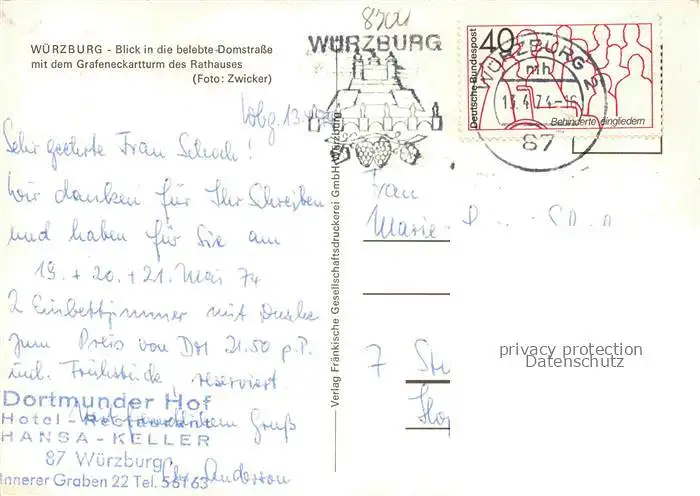 8701
WÜRZBURG - Blick in die belebte Domstraße
mit dem Grafeneckartturm des Rathauses
(Foto: Zwicker)
WÜRZBURG
Deutsche Bundespost
40
Behinderte eingliedern
WÜRZBURG 2
mh
87
Wbg. 13.4.74
Sehr geehrte Frau Schoch!
wir danken für Ihr Schreiben
und haben für Sie am
19. + 20. + 21. Mai 74
2 Einbettzimmer mit Dusche
zum Preis von DM 21.50 p.P.
incl. Frühstück, reserviert
Mit freundlichem Gruß
Dortmunder Hof
Hotel - Restaurant
HANSA - KELLER
87 Würzburg
Innerer Graben 22 Tel. 56163
Verlag Fränkische Gesellschaftsdruckerei GmbH Würzburg
Frau
Marie-
7 Stu
privacy protection
Datenschutz